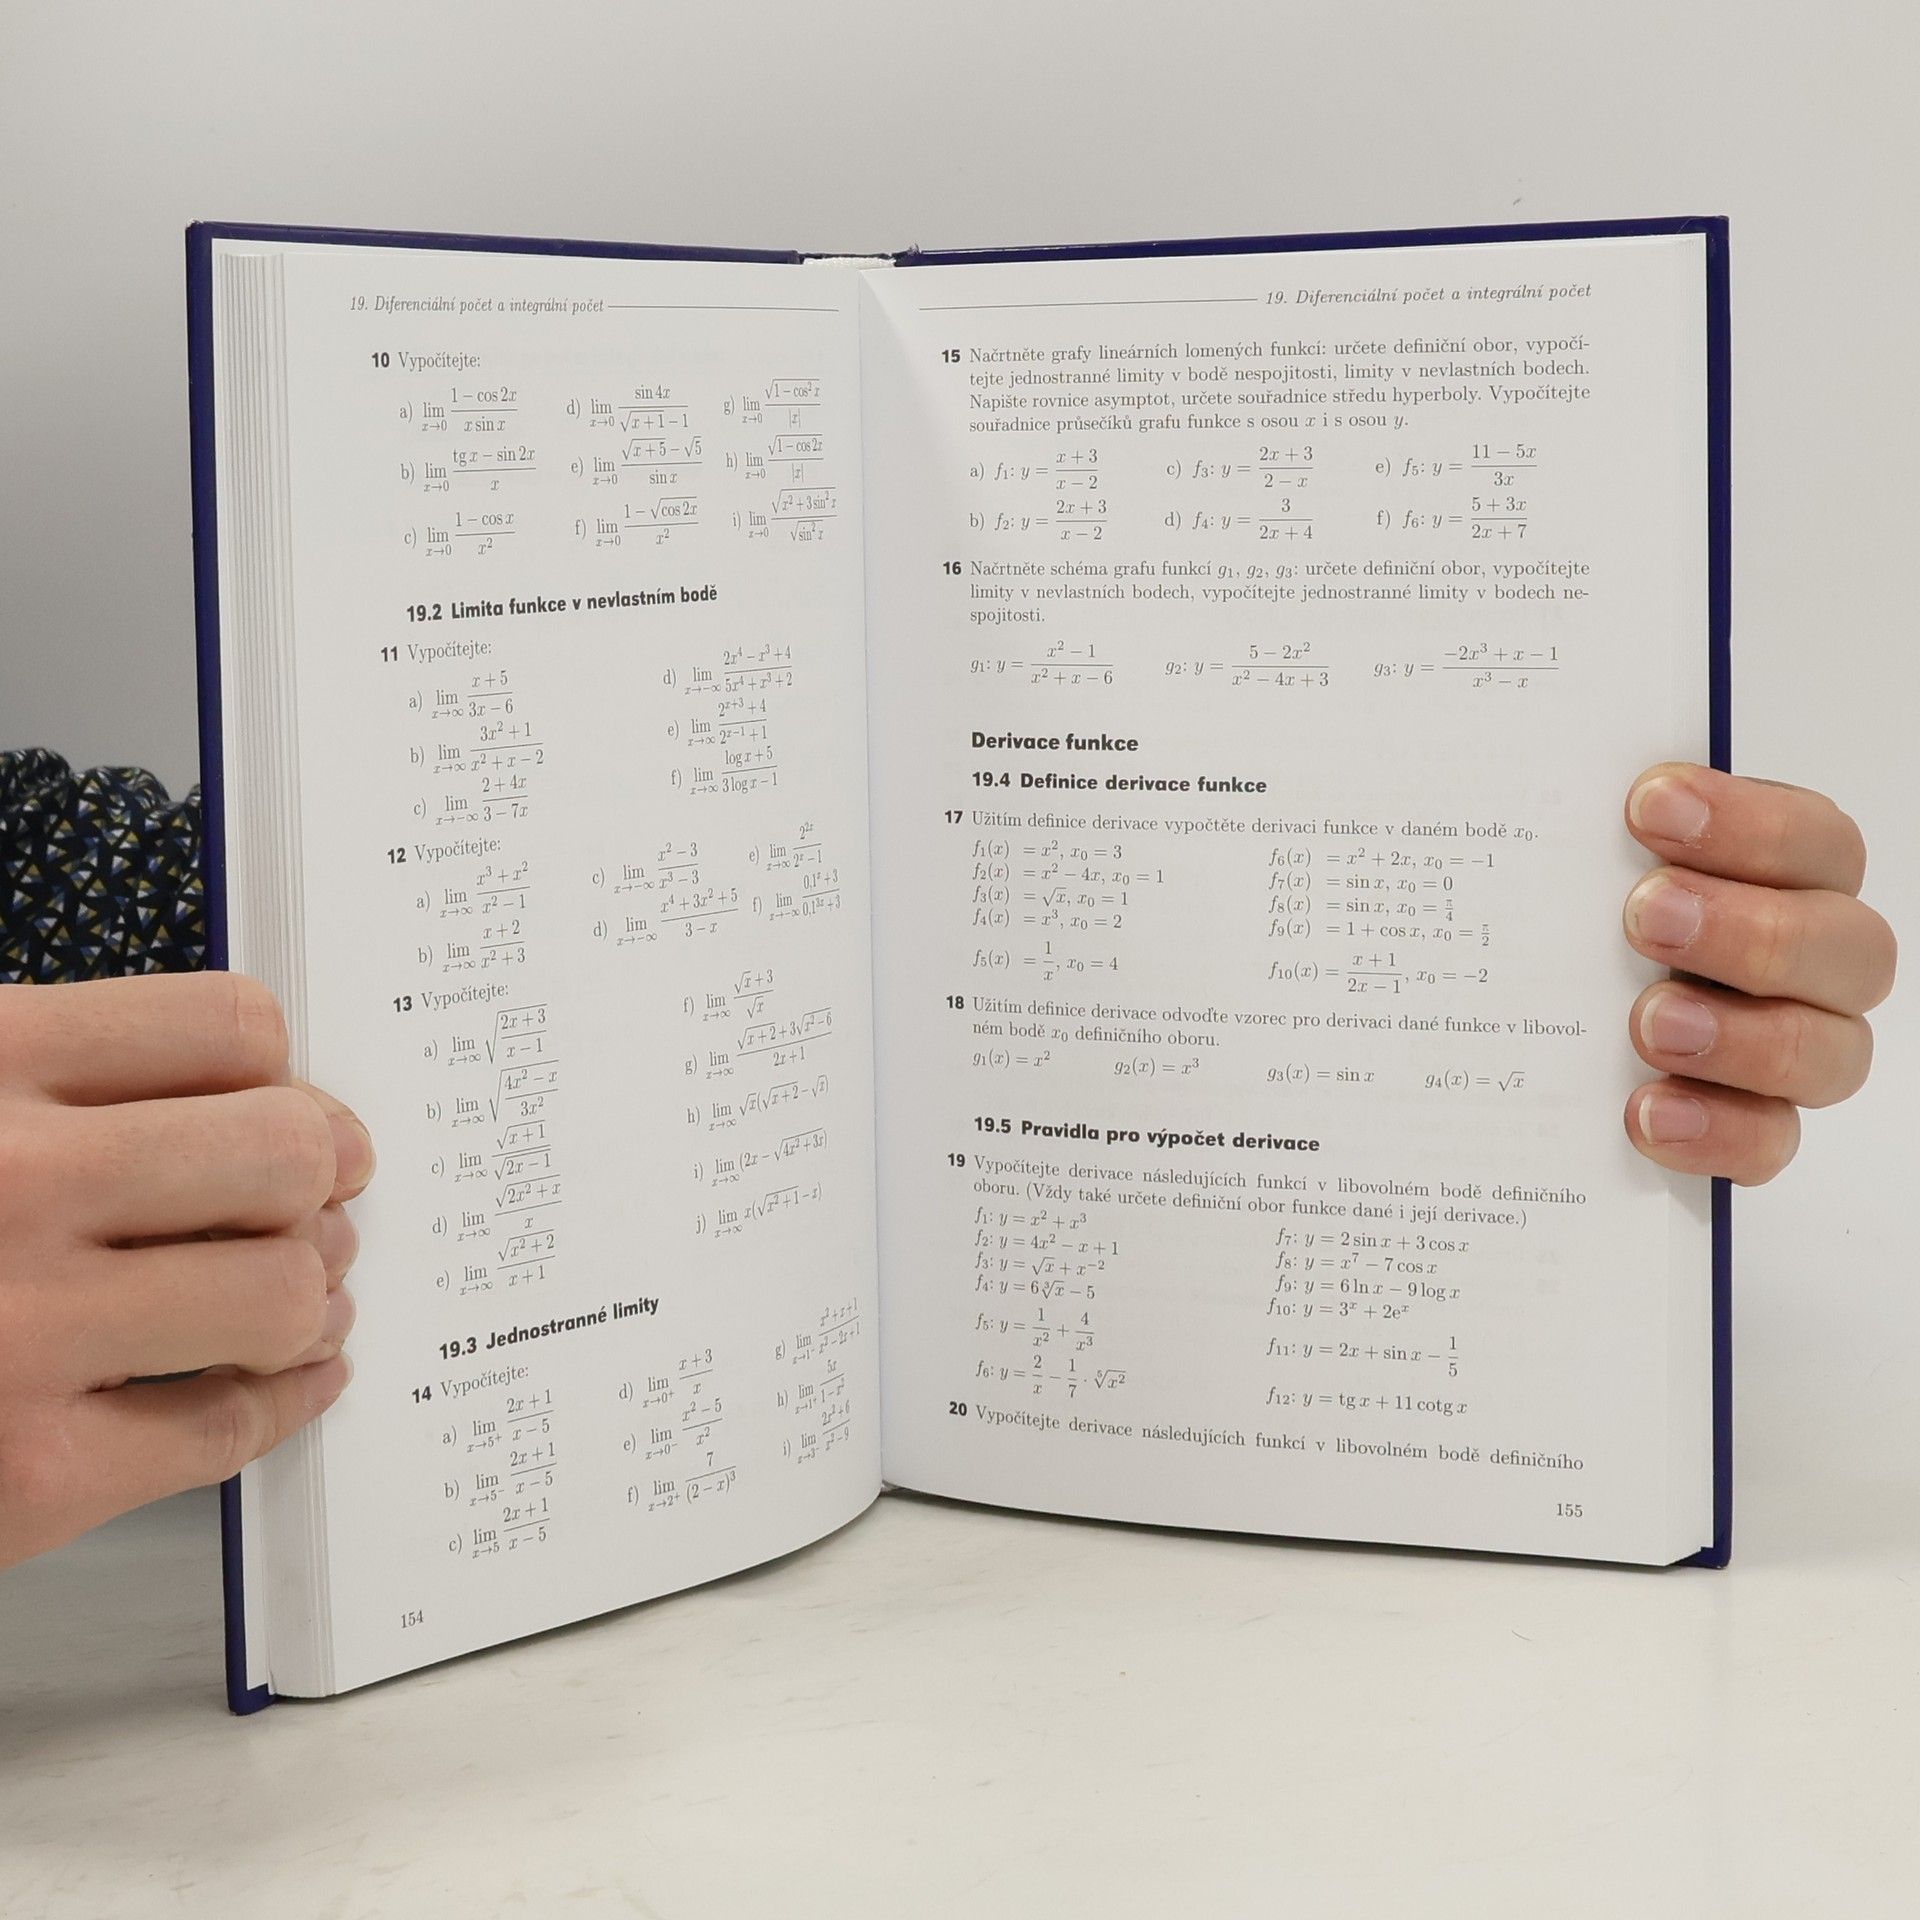 19. Diferenciální počet a integrální počet
10 Vypočítejte:
a) lim x→0 (1 − cos 2x)/(x sin x)
d) lim x→0 (sin 4x)/(√(x + 1) − 1)
g) lim x→0 √(1 − cos² x)/|x|
b) lim x→0 (tg x − sin 2x)/x
e) lim x→0 (√(x + 5) − √5)/(sin x)
h) lim x→0 √(1 − cos 2x)/|x|
c) lim x→0 (1 − cos x)/x²
f) lim x→0 (1 − √(cos 2x))/x²
i) lim x→0 √(x² + 3 sin² x)/√(sin² x)
19.2 Limita funkce v nevlastním bodě
11 Vypočítejte:
a) lim x→∞ (x + 5)/(3x − 6)
d) lim x→−∞ (2x⁴ − x³ + 4)/(5x⁴ + x³ + 2)
b) lim x→∞ (3x² + 1)/(x² + x − 2)
e) lim x→∞ (2^(x+3) + 4)/(2^(x−1) + 1)
c) lim x→−∞ (2 + 4x)/(3 − 7x)
f) lim x→∞ (log x + 5)/(3 log x − 1)
12 Vypočítejte:
a) lim x→∞ (x³ + x²)/(x² − 1)
c) lim x→−∞ (x² − 3)/(x³ − 3)
e) lim x→∞ 2^(2x)/(2^x − 1)
b) lim x→∞ (x + 2)/(x² + 3)
d) lim x→−∞ (x⁴ + 3x² + 5)/(3 − x)
f) lim x→−∞ (0,1^x + 3)/(0,1^(3x) + 3)
13 Vypočítejte:
a) lim x→∞ √((2x + 3)/(x − 1))
f) lim x→∞ (√x + 3)/√x
b) lim x→∞ √((4x² − x)/(3x²))
g) lim x→∞ (√(x + 2) + 3√(x² − 6))/(2x + 1)
c) lim x→∞ √(x + 1)/√(2x − 1)
h) lim x→∞ √x(√(x + 2) − √x)
d) lim x→∞ √(2x² + x)/x
i) lim x→∞ (2x − √(4x² + 3x))
e) lim x→∞ √(x² + 2)/(x + 1)
j) lim x→∞ x(√(x² + 1) − x)
19.3 Jednostranné limity
14 Vypočítejte:
a) lim x→5⁺ (2x + 1)/(x − 5)
d) lim x→0⁺ (x + 3)/x
g) lim x→1⁻ (x² + x + 1)/(x² − 2x + 1)
b) lim x→5⁻ (2x + 1)/(x − 5)
e) lim x→0⁻ (x² − 5)/x²
h) lim x→1⁺ 5x/(1 − x²)
c) lim x→5 (2x + 1)/(x − 5)
f) lim x→2⁺ 7/(2 − x)³
i) lim x→3⁻ (2x² + 6)/(x² − 9)
154
19. Diferenciální počet a integrální počet
15 Načrtněte grafy lineárních lomených funkcí: určete definiční obor, vypočí-
tejte jednostranné limity v bodě nespojitosti, limity v nevlastních bodech.
Napište rovnice asymptot, určete souřadnice středu hyperboly. Vypočítejte
souřadnice průsečíků grafu funkce s osou x i s osou y.
a) f₁: y = (x + 3)/(x − 2)
c) f₃: y = (2x + 3)/(2 − x)
e) f₅: y = (11 − 5x)/(3x)
b) f₂: y = (2x + 3)/(x − 2)
d) f₄: y = 3/(2x + 4)
f) f₆: y = (5 + 3x)/(2x + 7)
16 Načrtněte schéma grafu funkcí g₁, g₂, g₃: určete definiční obor, vypočítejte
limity v nevlastních bodech, vypočítejte jednostranné limity v bodech ne-
spojitosti.
g₁: y = (x² − 1)/(x² + x − 6)
g₂: y = (5 − 2x²)/(x² − 4x + 3)
g₃: y = (−2x³ + x − 1)/(x³ − x)
Derivace funkce
19.4 Definice derivace funkce
17 Užitím definice derivace vypočtěte derivaci funkce v daném bodě x₀.
f₁(x) = x², x₀ = 3
f₆(x) = x² + 2x, x₀ = −1
f₂(x) = x² − 4x, x₀ = 1
f₇(x) = sin x, x₀ = 0
f₃(x) = √x, x₀ = 1
f₈(x) = sin x, x₀ = π/4
f₄(x) = x³, x₀ = 2
f₉(x) = 1 + cos x, x₀ = π/2
f₅(x) = 1/x, x₀ = 4
f₁₀(x) = (x + 1)/(2x − 1), x₀ = −2
18 Užitím definice derivace odvoďte vzorec pro derivaci dané funkce v libovol-
ném bodě x₀ definičního oboru.
g₁(x) = x² g₂(x) = x³ g₃(x) = sin x g₄(x) = √x
19.5 Pravidla pro výpočet derivace
19 Vypočítejte derivace následujících funkcí v libovolném bodě definičního
oboru. (Vždy také určete definiční obor funkce dané i její derivace.)
f₁: y = x² + x³
f₇: y = 2 sin x + 3 cos x
f₂: y = 4x² − x + 1
f₈: y = x⁷ − 7 cos x
f₃: y = √x + x⁻²
f₉: y = 6 ln x − 9 log x
f₄: y = 6∛x − 5
f₁₀: y = 3^x + 2e^x
f₅: y = 1/x² + 4/x³
f₁₁: y = 2x + sin x − 1/5
f₆: y = 2/x − 1/7 · ⁵√(x²)
f₁₂: y = tg x + 11 cotg x
20 Vypočítejte derivace následujících funkcí v libovolném bodě definičního
155